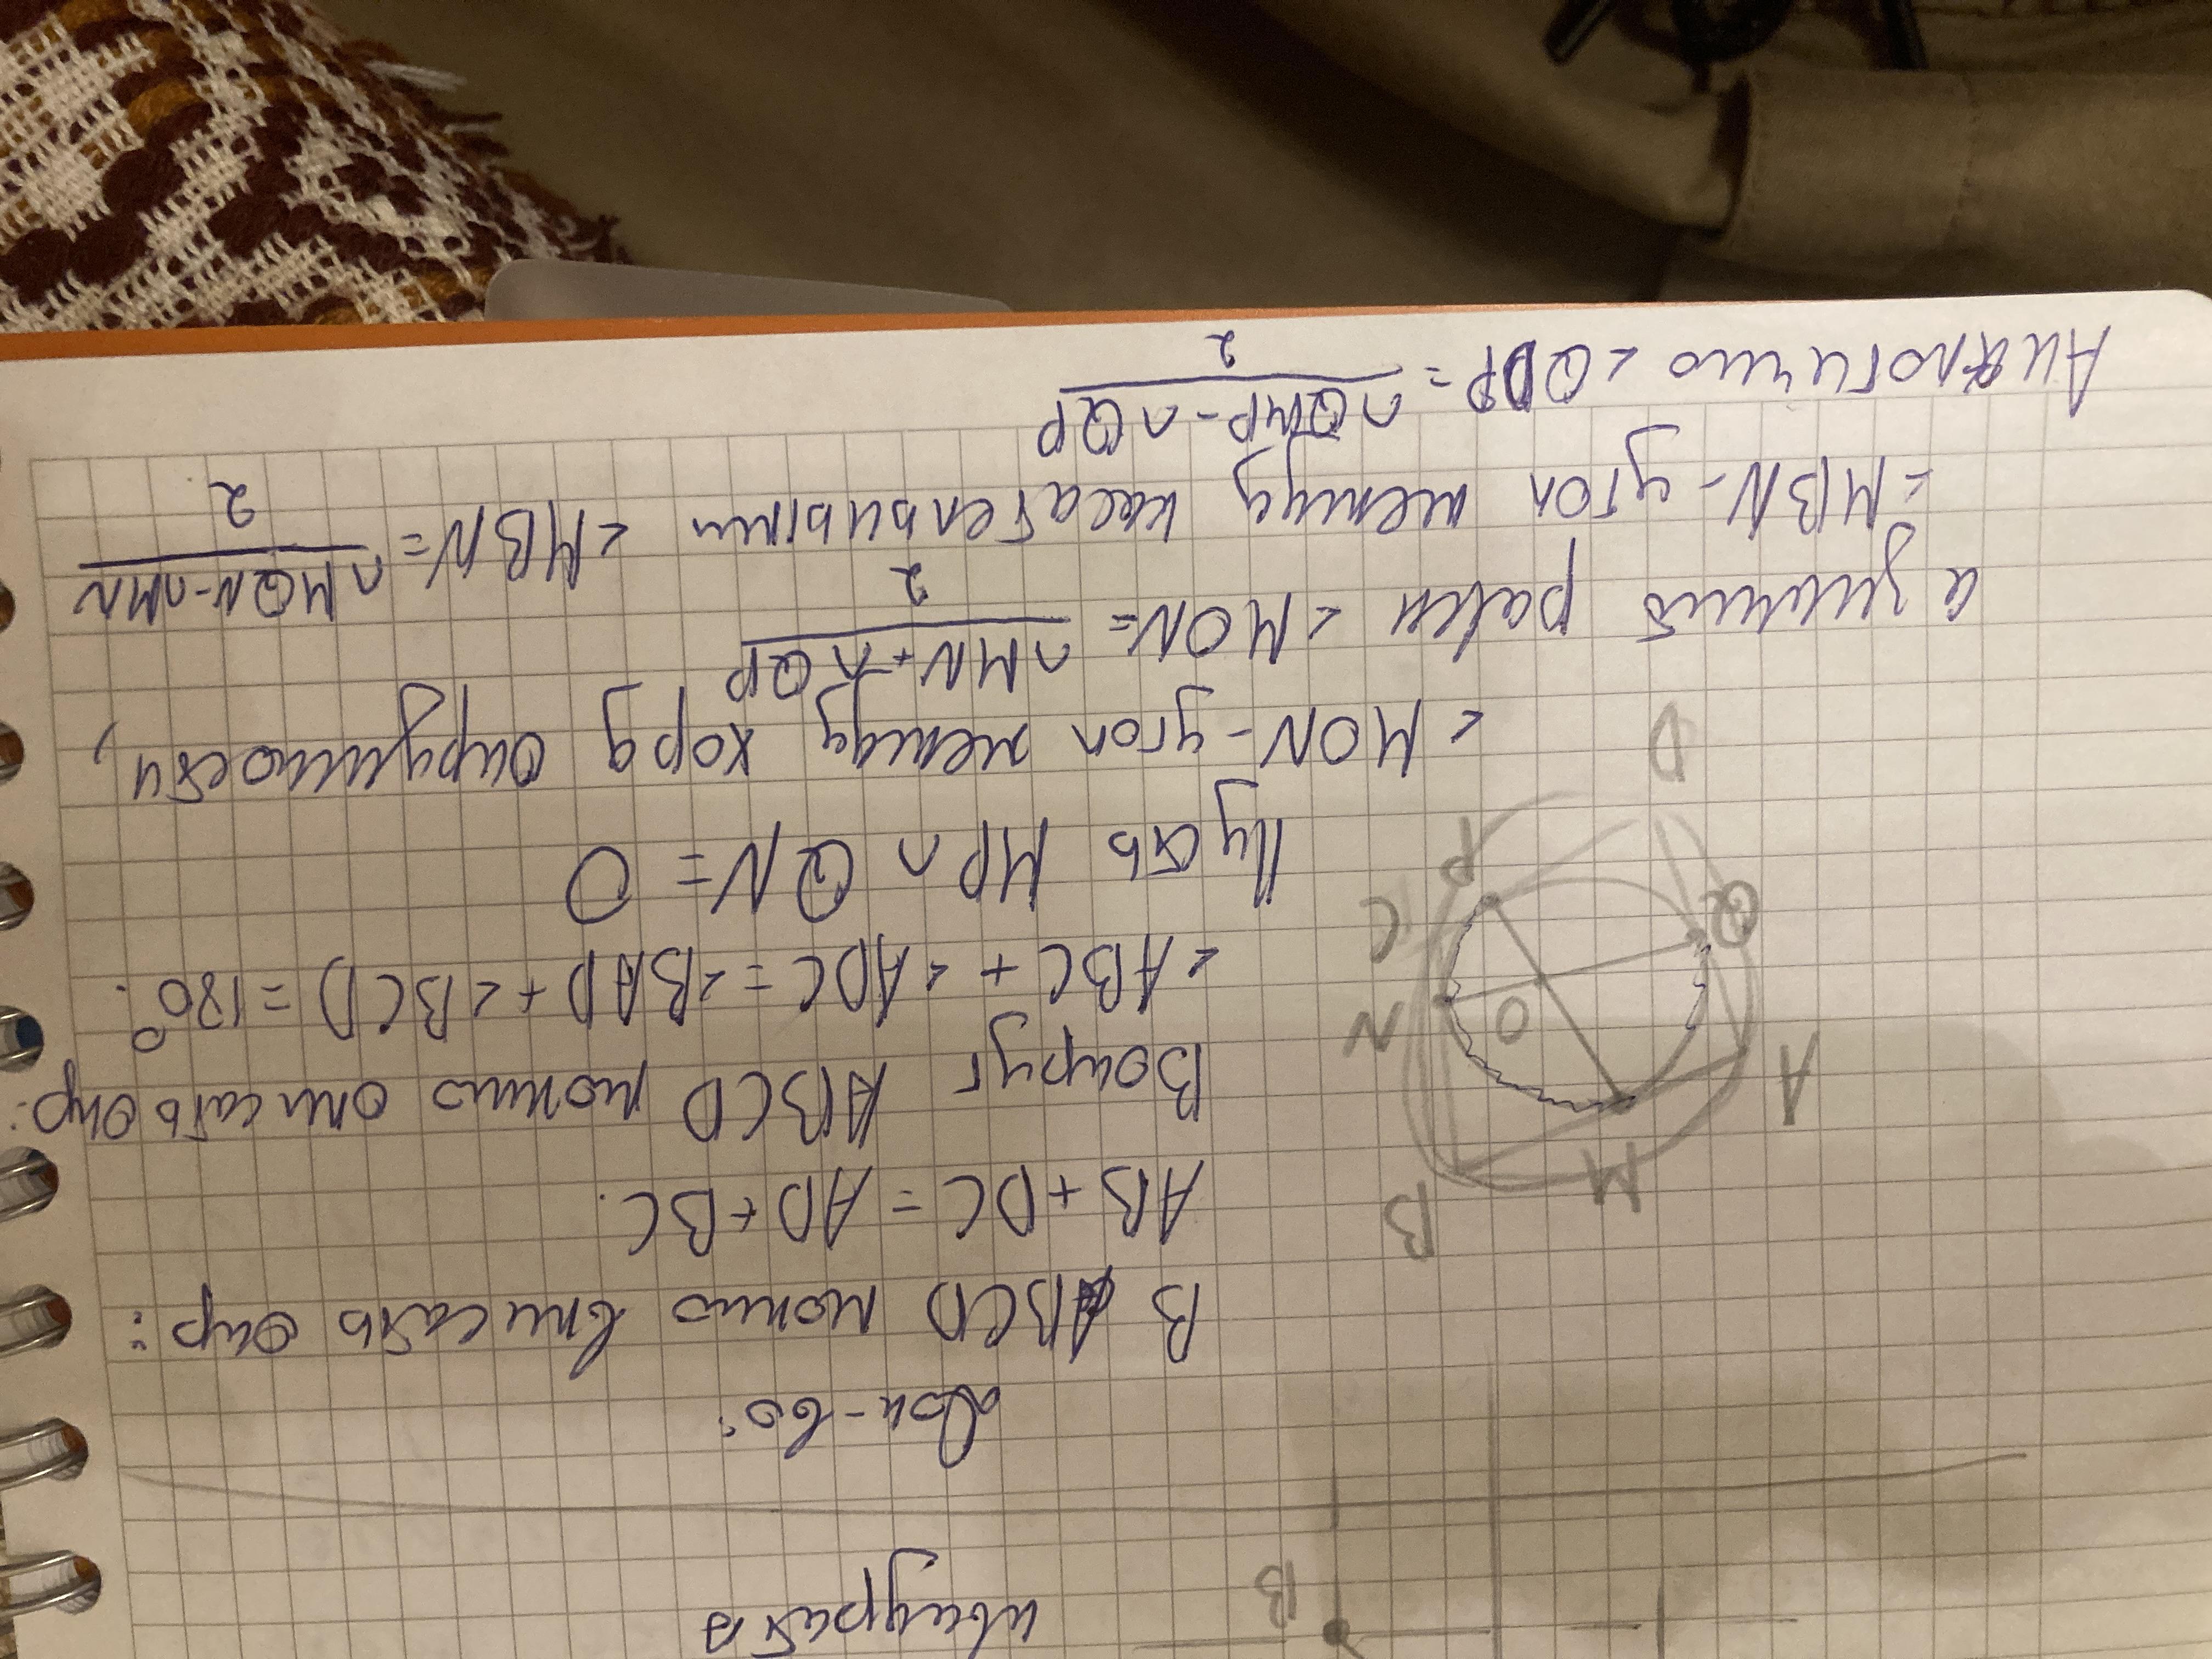 квадрата
B
Док-во:
В ABCD можно вписать окр:
AB + DC = AD + BC.
Вокруг ABCD можно описать окр:
<ABC + <ADC = <BAD + <BCD = 180°.
B
M
A
N
O
C
Q
P
D
Пусть MP ∩ QN = O
<MON - угол между хорд окружности,
а значит равен <MON = ∩MN + ∩QP / 2
<MBN - угол между касательными <MBN = ∩MQN - ∩MN / 2
Аналогично <QDP = ∩QMP - ∩QP / 2